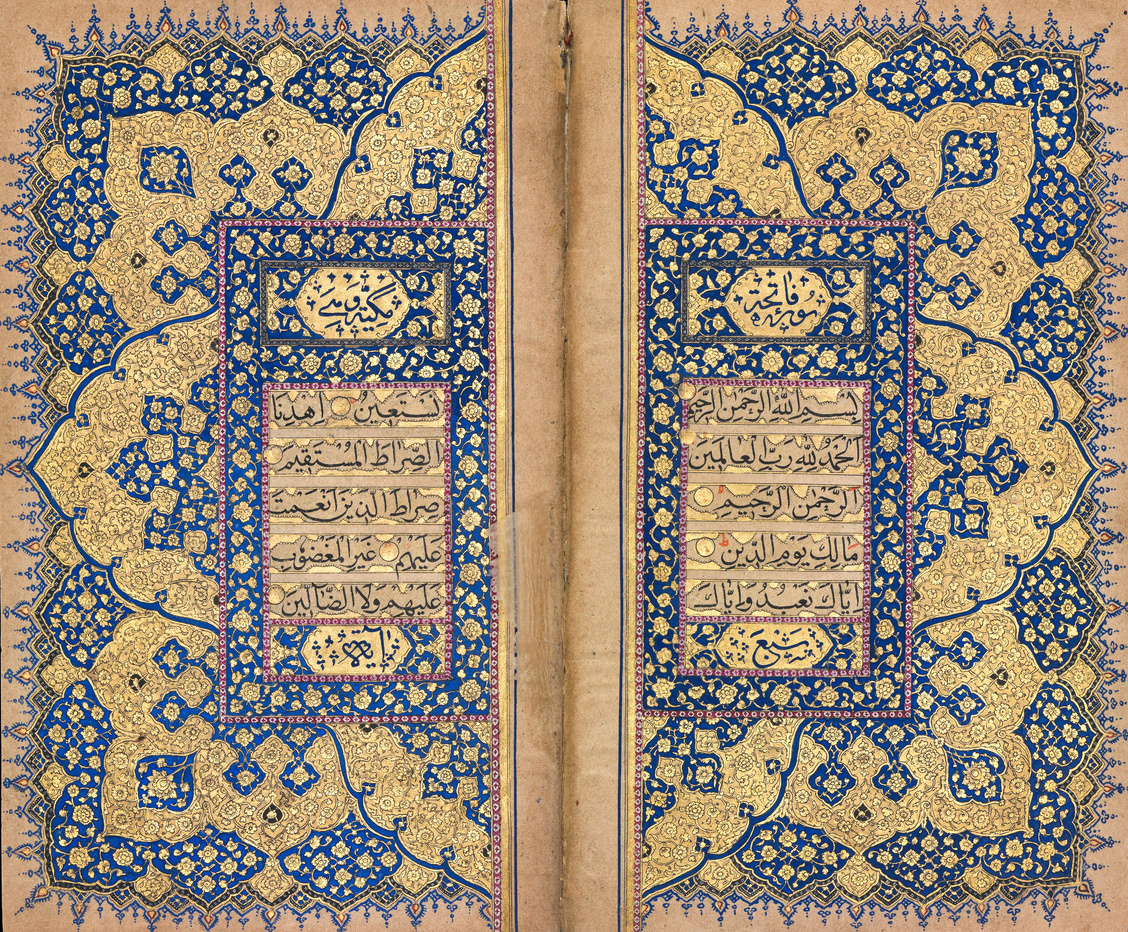 سورة فاتحة
بسم الله الرحمن الرحيم
الحمد لله رب العالمين
الرحمن الرحيم
مالك يوم الدين
اياك نعبد واياك
سبع
مكية وهي
نستعين اهدنا
الصراط المستقيم
صراط الذين انعمت
عليهم غير المغضوب
عليهم ولا الضالين
آية